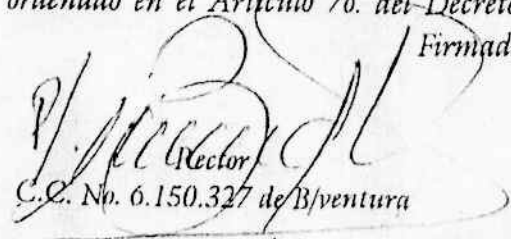 ordenado en el Artículo 7o. del Decreto
Firmad
Rector
C.C. No. 6.150.327 de B/ventura